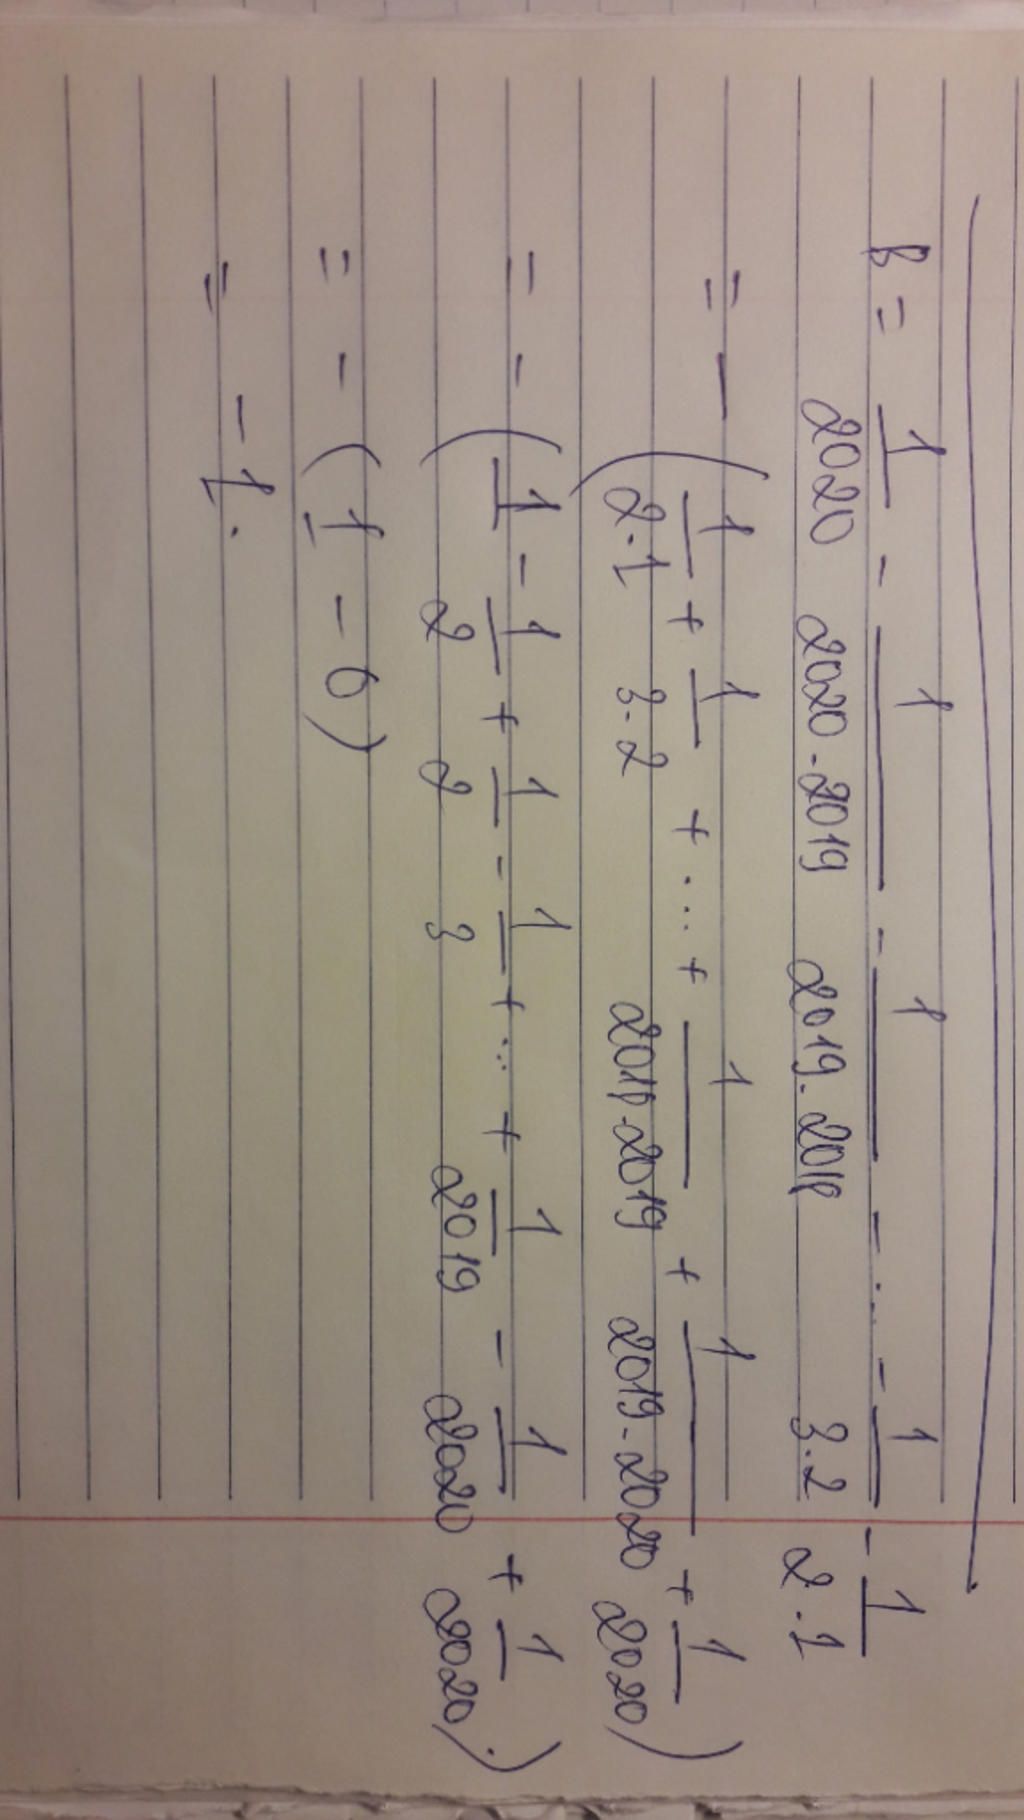 B = 1/2020 - 1/2020.2019 - 1/2019.2018 - ... - 1/3.2 - 1/2.1
= - (1/2.1 + 1/3.2 + ... + 1/2018.2019 + 1/2019.2020 + 1/2020)
= - (1/1 - 1/2 + 1/2 - 1/3 + ... + 1/2019 - 1/2020 + 1/2020.)
= - (1 - 0)
= - 1.